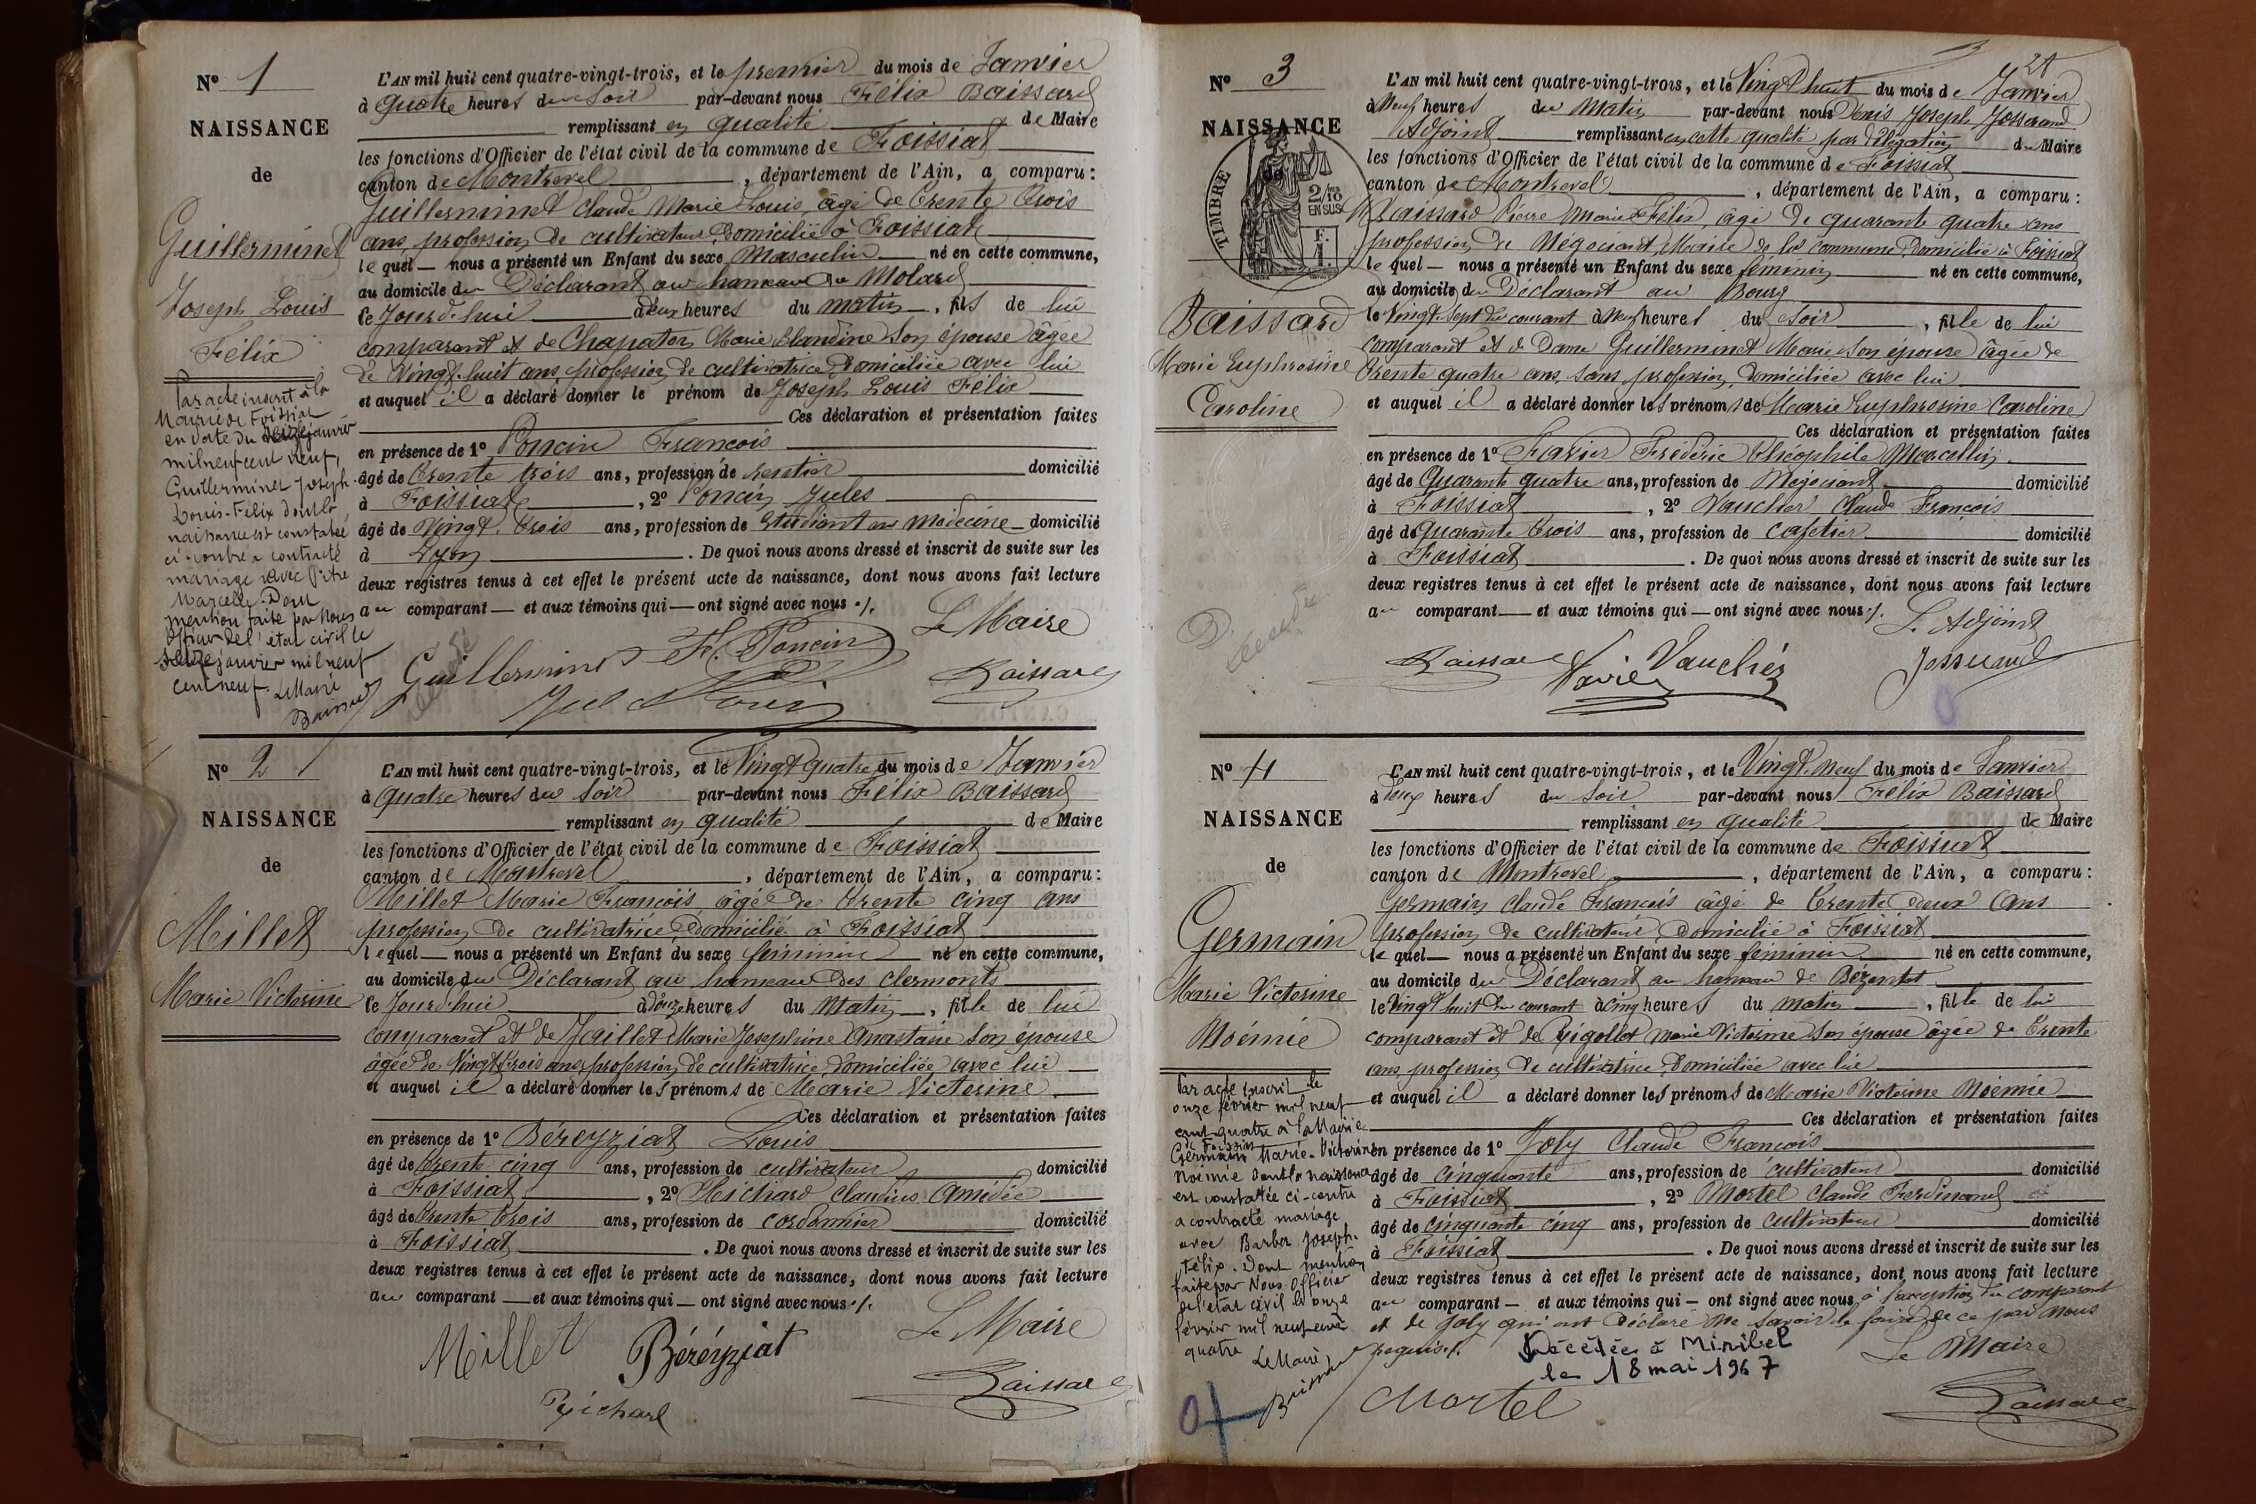 N° 1
NAISSANCE
de
Guillerminet
Joseph Louis
Félix
Par acte inscrit à la
Mairie de Foissiat
en date du seize janvier
mil neuf cent neuf,
Guillerminet Joseph-
Louis-Félix dont la
naissance est constatée
ci-contre a contracté
mariage avec Pitre
Marcelle. Dont
mention faite par Nous
officier de l'état civil le
seize janvier mil neuf
cent neuf. Le Maire
Baissard
L'AN mil huit cent quatre-vingt-trois, et le premier du mois de Janvier
à quatre heures du soir par-devant nous Félix Baissard
remplissant en qualité de Maire
les fonctions d'Officier de l'état civil de la commune de Foissiat
canton de Montrevel, département de l'Ain, a comparu :
Guillerminet Claude Marie Louis, âgé de trente trois
ans, profession de cultivateur, domicilié à Foissiat
lequel — nous a présenté un Enfant du sexe Masculin né en cette commune,
au domicile du Déclarant au hameau du Molard
le Jourd'hui à deux heures du matin, fils de lui
comparant et de Chapaton Marie Claudine son épouse âgée
de Vingt-huit ans, profession de cultivatrice, domiciliée avec lui
et auquel il a déclaré donner le prénom de Joseph Louis Félix
Ces déclaration et présentation faites
en présence de 1° Poncin François
âgé de trente trois ans, profession de rentier domicilié
à Foissiat, 2° Poncin Jules
âgé de Vingt trois ans, profession de Etudiant en Médecine domicilié
à Lyon. De quoi nous avons dressé et inscrit de suite sur les
deux registres tenus à cet effet le présent acte de naissance, dont nous avons fait lecture
au comparant — et aux témoins qui — ont signé avec nous ./.
Le Maire
Guillerminet F. Poncin
Baissard
N° 2
NAISSANCE
de
Millet
Marie Victorine
L'AN mil huit cent quatre-vingt-trois, et le Vingt quatre du mois de Janvier
à quatre heures du soir par-devant nous Félix Baissard
remplissant en qualité de Maire
les fonctions d'Officier de l'état civil de la commune de Foissiat
canton de Montrevel, département de l'Ain, a comparu :
Millet Marie François, âgé de trente cinq ans
profession de cultivatrice, domicilié à Foissiat
lequel — nous a présenté un Enfant du sexe féminin né en cette commune,
au domicile du Déclarant au hameau des Clermonts
le Jourd'hui à douze heures du Matin, fille de lui
comparant et de Jaillet Marie Josephine Anastasie son épouse
âgée de Vingt trois ans, profession de cultivatrice, domiciliée avec lui
et auquel il a déclaré donner les prénoms de Marie Victorine
Ces déclaration et présentation faites
en présence de 1° Béreyziat Louis
âgé de trente cinq ans, profession de cultivateur domicilié
à Foissiat, 2° Pichard Claudius Amédée
âgé de trente trois ans, profession de cordonnier domicilié
à Foissiat. De quoi nous avons dressé et inscrit de suite sur les
deux registres tenus à cet effet le présent acte de naissance, dont nous avons fait lecture
au comparant — et aux témoins qui — ont signé avec nous ./.
Le Maire
Millet Béréyziat
Baissard
Pichard
21
N° 3
NAISSANCE
de
TIMBRE
2/10
EN SUS
F.
1.
Baissard
Marie Euphrosine
Caroline
L'AN mil huit cent quatre-vingt-trois, et le Vingt huit du mois de Janvier
à Neuf heures du Matin par-devant nous Denis Joseph Josserand
Adjoint remplissant en cette qualité par délégation du Maire
les fonctions d'Officier de l'état civil de la commune de Foissiat
canton de Montrevel, département de l'Ain, a comparu :
Baissard Pierre Marie Félix, âgé de quarante quatre ans
profession de Négociant, Maire de la commune, domicilié à Foissiat
lequel — nous a présenté un Enfant du sexe féminin né en cette commune,
au domicile du Déclarant au Bourg
le Vingt-sept du courant à Neuf heures du soir, fille de lui
comparant et de Dame Guillerminet Marie son épouse âgée de
trente quatre ans, sans profession, domiciliée avec lui
et auquel il a déclaré donner les prénoms de Marie Euphrosine Caroline
Ces déclaration et présentation faites
en présence de 1° Favier Frédéric Théophile Marcellin
âgé de Quarante quatre ans, profession de Négociant domicilié
à Foissiat, 2° Vaucher Claude François
âgé de quarante trois ans, profession de cafetier domicilié
à Foissiat. De quoi nous avons dressé et inscrit de suite sur les
deux registres tenus à cet effet le présent acte de naissance, dont nous avons fait lecture
au comparant — et aux témoins qui — ont signé avec nous ./.
L'Adjoint
Baissard Favier Vauchér Josserand
N° 4
NAISSANCE
de
Germain
Marie Victorine
Noémie
Par acte inscrit le
onze février mil neuf
cent quatre à la Mairie
de Foissiat
Germain Marie-Victorine
Noémie dont la naissance
est constatée ci-contre
a contracté mariage
avec Barbet Joseph-
Félix. Dont mention
faite par Nous Officier
de l'état civil le onze
février mil neuf cent
quatre
Le Maire
Baissard
L'AN mil huit cent quatre-vingt-trois, et le Vingt Neuf du mois de Janvier
à deux heures du soir par-devant nous Félix Baissard
remplissant en qualité de Maire
les fonctions d'Officier de l'état civil de la commune de Foissiat
canton de Montrevel, département de l'Ain, a comparu :
Germain Claude François âgé de trente deux ans
profession de cultivateur, domicilié à Foissiat
lequel — nous a présenté un Enfant du sexe féminin né en cette commune,
au domicile du Déclarant au hameau de Bézentet
le Vingt huit du courant à cinq heures du matin, fille de lui
comparant et de Vigollet Marie Victorine son épouse âgée de trente
ans, profession de cultivatrice, domiciliée avec lui
et auquel il a déclaré donner les prénoms de Marie Victorine Noémie
Ces déclaration et présentation faites
en présence de 1° Joly Claude François
âgé de cinquante ans, profession de cultivateur domicilié
à Foissiat, 2° Mortel Claude Ferdinand
âgé de cinquante cinq ans, profession de cultivateur domicilié
à Foissiat. De quoi nous avons dressé et inscrit de suite sur les
deux registres tenus à cet effet le présent acte de naissance, dont nous avons fait lecture
au comparant — et aux témoins qui — ont signé avec nous à l'exception du comparant
et de Joly qui ont déclaré ne savoir le faire de ce par nous
requis ./. Le Maire
Décédée à Miribel
le 18 mai 1967
Mortel Baissard